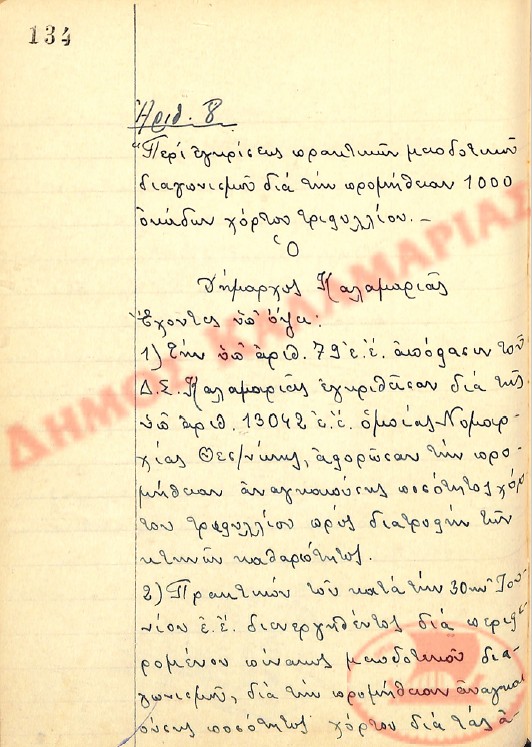 134
Ἀριθ. 8
"Περί ἐγκρίσεως πρακτικῶν μειοδοτικοῦ
διαγωνισμοῦ διά τήν προμήθειαν 1000
ὀκάδων χόρτου τριφυλλίου.-
Ὁ
Δήμαρχος Καλαμαριᾶς
Ἔχοντες ὑπ' ὄψει:
1) Τήν ὑπ' ἀριθ. 79 ἐ.ἔ. ἀπόφασιν τοῦ
Δ.Σ. Καλαμαριᾶς ἐγκριθεῖσαν διά τῆς
ὑπ' ἀριθ. 13042 ἐ.ἔ. ὁμοίας Νομαρ-
χίας Θεσ/νίκης, ἀφορῶσαν τήν προ-
μήθειαν ἀναγκαιούσης ποσότητος χόρ
του τριφυλλίου πρός διατροφήν τῶν
κτηνῶν καθαριότητος.
2) Πρακτικόν τοῦ κατά τήν 30ην Ἰου-
νίου ἐ.ἔ. διενεργηθέντος διά περιφε
ρομένου πίνακος μειοδοτικοῦ δια-
γωνισμοῦ, διά τήν προμήθειαν ἀναγκαι
ούσης ποσότητος χόρτου διά τάς ἀ-
ΔΗΜΟΣ ΚΑΛΑΜΑΡΙΑΣ